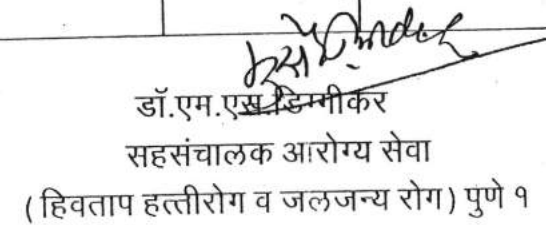 डॉ.एम.एस.डिग्गीकर
सहसंचालक आरोग्य सेवा
( हिवताप हत्तीरोग व जलजन्य रोग) पुणे १